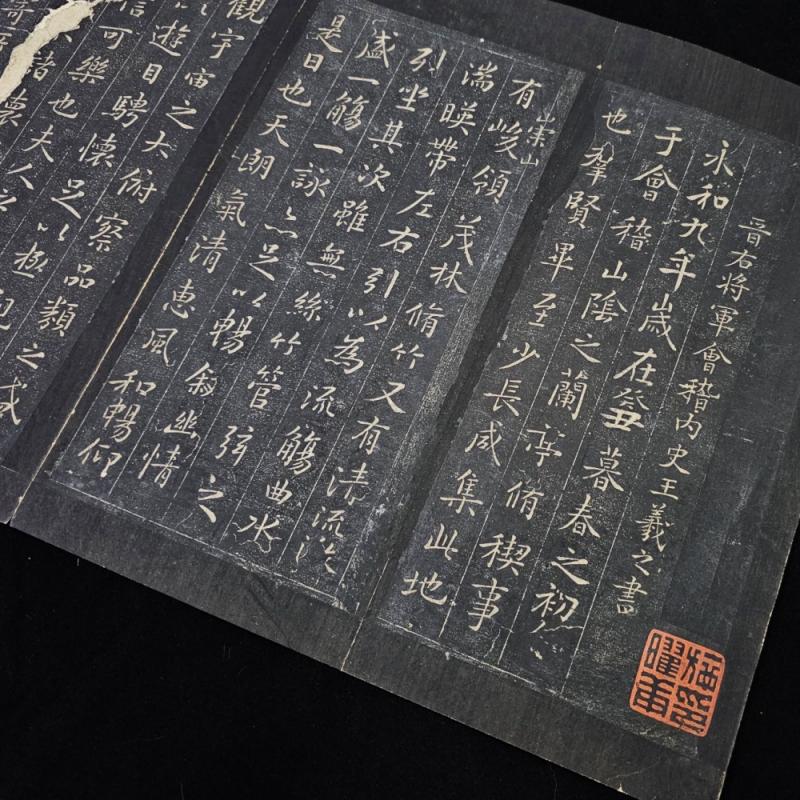 晉右将軍會稽内史王羲之書
永和九年歲在癸丑暮春之初
于會稽山陰之蘭亭脩稧事
也羣賢畢至少長咸集此地
有崇山峻領茂林脩竹又有清流激
湍暎帶左右引以為流觴曲水
列坐其次雖無絲竹管弦之
盛一觴一詠亦足以暢叙幽情
是日也天朗氣清惠風和暢仰
觀宇宙之大俯察品類之盛
以遊目騁懷足以極視
信可樂也夫人之
諸懷